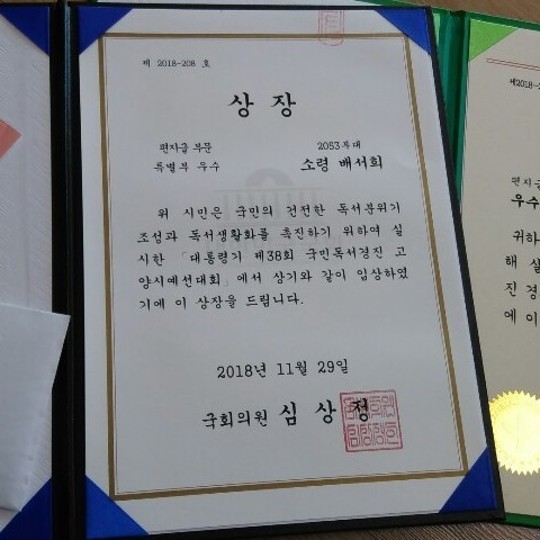 제 2018-208 호
상 장
편지글 부문
특별부 우수
2053부대
소령 배서희
위 시민은 국민의 건전한 독서분위기
조성과 독서생활화를 촉진하기 위하여 실
시한 「대통령기 제38회 국민독서경진 고
양시예선대회」에서 상기와 같이 입상하였
기에 이 상장을 드립니다.
2018년 11월 29일
국회의원 심 상 정
제2018-2
편지글
우수
귀하
해 실
진 경
에 이